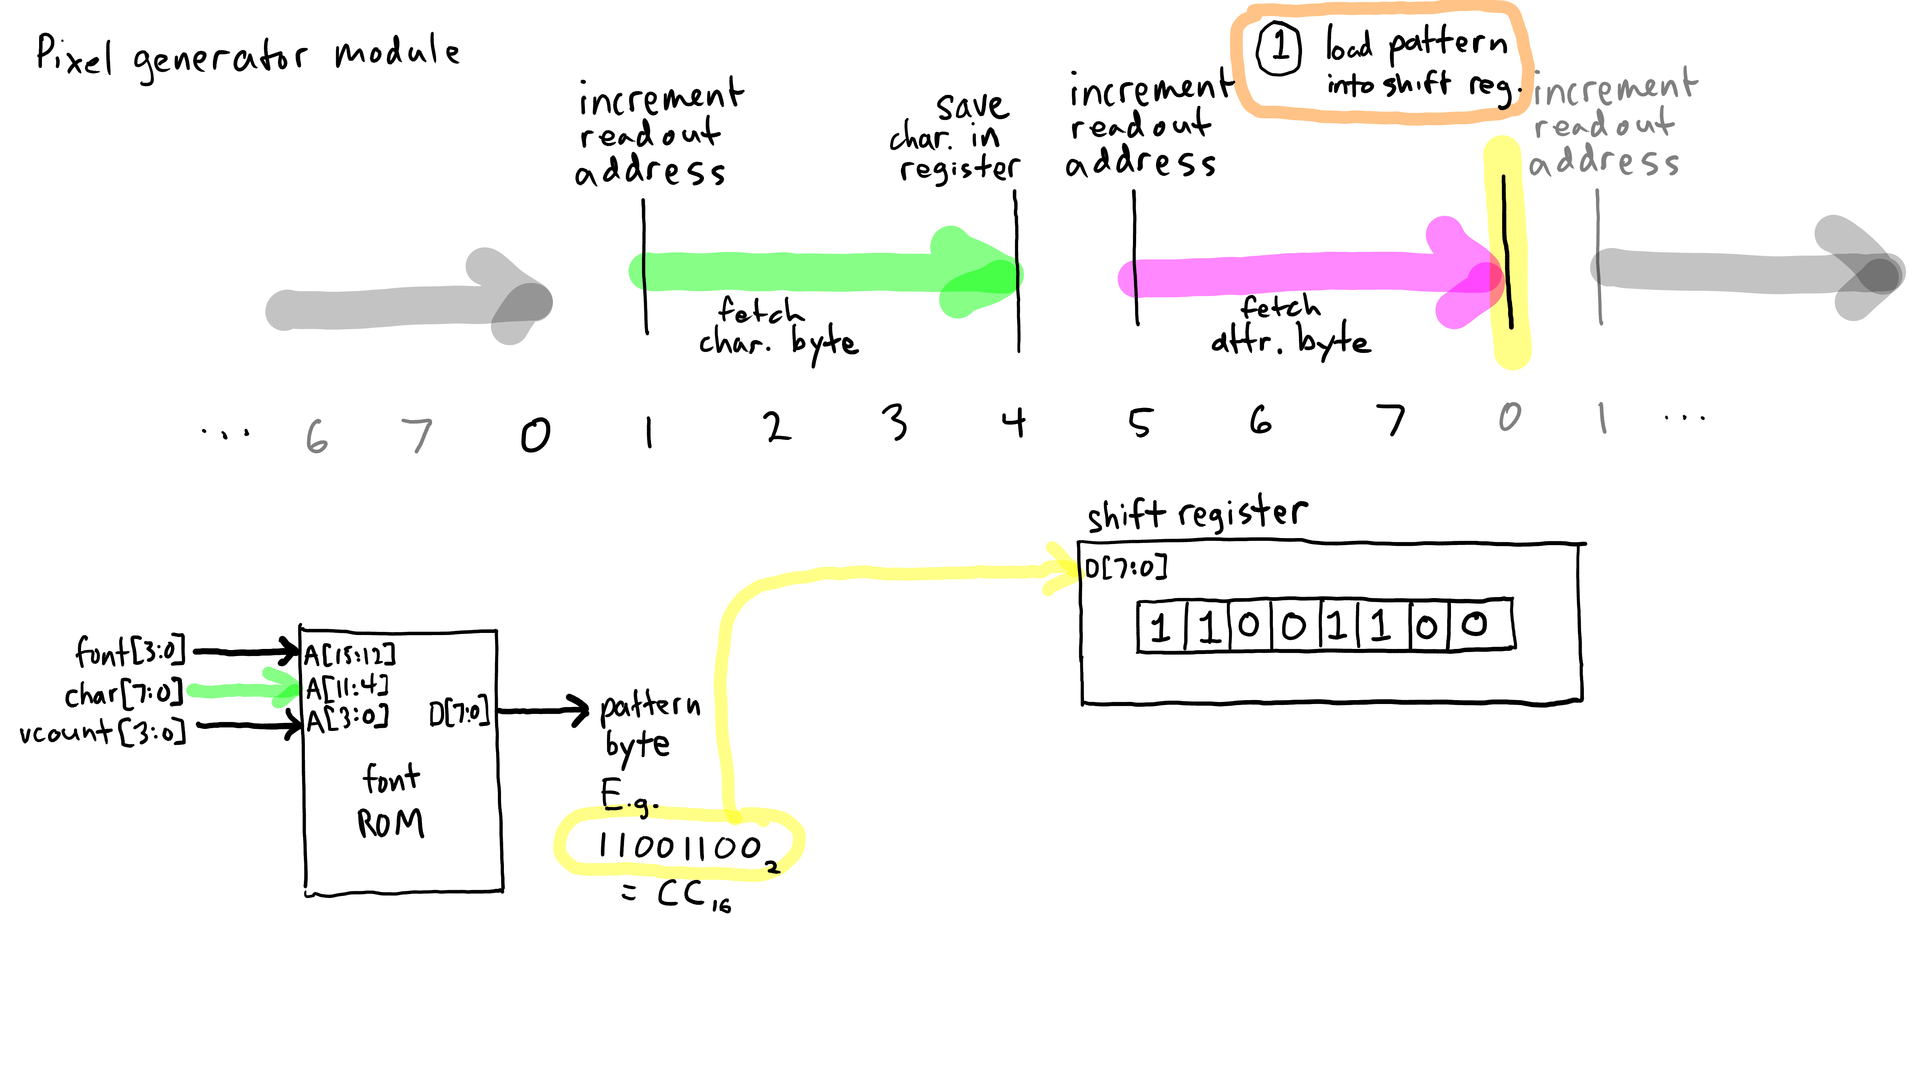 Pixel generator module
① load pattern
into shift reg.
increment
readout
address
save
char. in
register
increment
readout
address
increment
readout
address
fetch
char. byte
fetch
attr. byte
... 6 7 0 1 2 3 4 5 6 7 0 1 ...
shift register
D[7:0]
1 1 0 0 1 1 0 0
font[3:0]
char[7:0]
vcount[3:0]
A[15:12]
A[11:4]
A[3:0]
D[7:0]
font
ROM
pattern
byte
E.g.
11001100₂
= CC₁₆